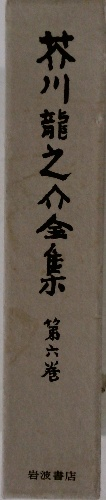 芥川龍之介全集
第六巻
岩波書店